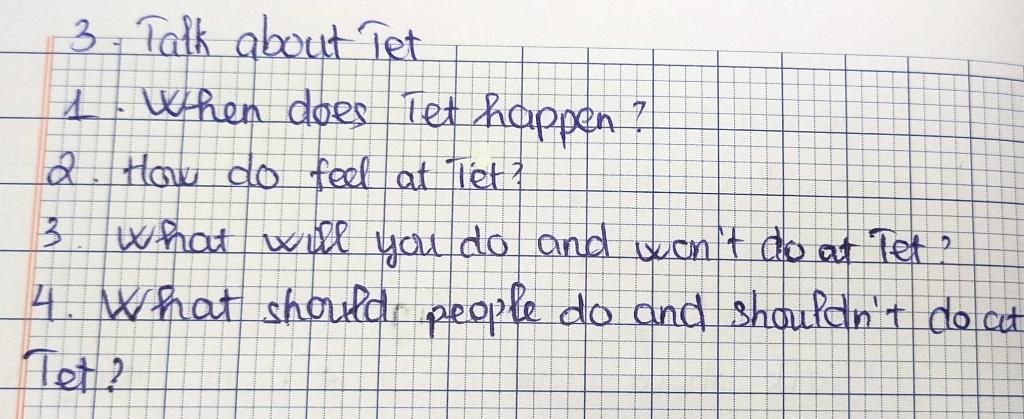 3. Talk about Tet
1. When does Tet happen?
2. How do feel at Tet?
3. What will you do and won't do at Tet?
4. What should people do and shouldn't do at
Tet?